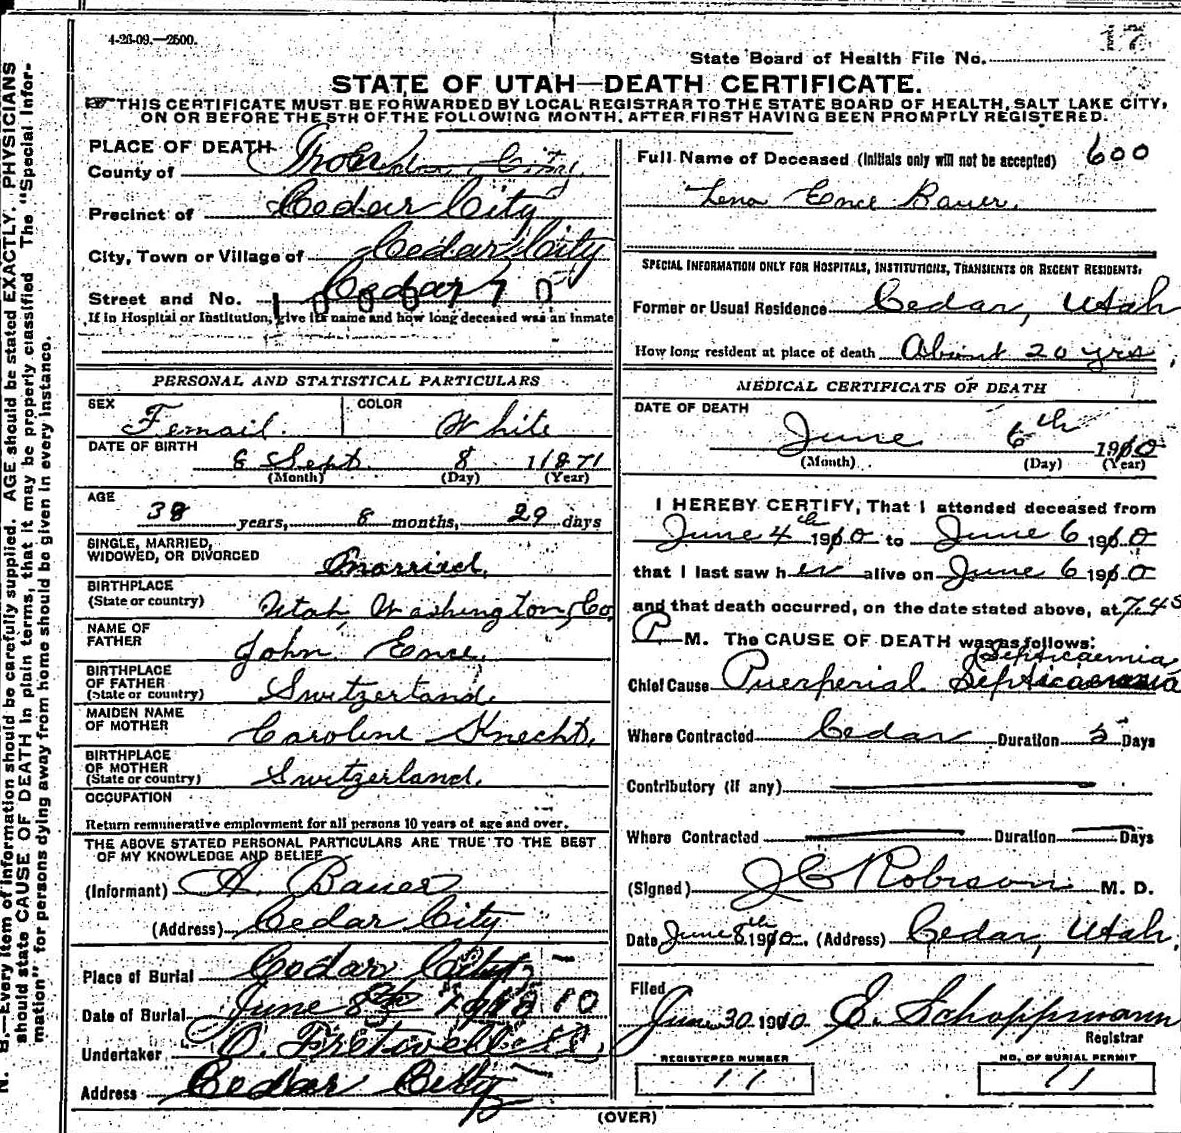 4-26-09.—2500.
17
State Board of Health File No.
STATE OF UTAH—DEATH CERTIFICATE.
THIS CERTIFICATE MUST BE FORWARDED BY LOCAL REGISTRAR TO THE STATE BOARD OF HEALTH, SALT LAKE CITY,
ON OR BEFORE THE 5TH OF THE FOLLOWING MONTH, AFTER FIRST HAVING BEEN PROMPTLY REGISTERED.
PLACE OF DEATH
County of
Precinct of Cedar City
City, Town or Village of Cedar City
Street and No. Cedar
If in Hospital or Institution, give its name and how long deceased was an inmate
PERSONAL AND STATISTICAL PARTICULARS
SEX Femail. COLOR White
DATE OF BIRTH Sept. 8 1871
(Month) (Day) (Year)
AGE
38 years, 8 months, 29 days
SINGLE, MARRIED,
WIDOWED, OR DIVORCED married.
BIRTHPLACE
(State or country) Utah, Washington, Co.
NAME OF
FATHER John Ence.
BIRTHPLACE
OF FATHER
(State or country) Switzerland.
MAIDEN NAME
OF MOTHER Caroline Knecht.
BIRTHPLACE
OF MOTHER
(State or country) Switzerland.
OCCUPATION
Return remunerative employment for all persons 10 years of age and over.
THE ABOVE STATED PERSONAL PARTICULARS ARE TRUE TO THE BEST
OF MY KNOWLEDGE AND BELIEF
(Informant) A. Bauer
(Address) Cedar City
Place of Burial Cedar City
Date of Burial June 8 1910
Undertaker O. Pretwell
Address Cedar City
Full Name of Deceased (Initials only will not be accepted) 600
Lena Ence Bauer.
SPECIAL INFORMATION ONLY FOR HOSPITALS, INSTITUTIONS, TRANSIENTS OR RECENT RESIDENTS.
Former or Usual Residence Cedar, Utah
How long resident at place of death About 20 yrs
MEDICAL CERTIFICATE OF DEATH
DATE OF DEATH
June 6th 1910
(Month) (Day) (Year)
I HEREBY CERTIFY, That I attended deceased from
June 4th 1910 to June 6 1910
that I last saw her alive on June 6 1910
and that death occurred, on the date stated above, at 7.45
P M. The CAUSE OF DEATH was as follows:
Septicaemia
Chief Cause Puerperial Septicaemia
Where Contracted Cedar Duration 5 Days
Contributory (if any)
Where Contracted Duration Days
(Signed) J C Robison M. D.
Date June 8th 1910. (Address) Cedar, Utah.
Filed
June 30 1910. E. Schoppmann
Registrar
REGISTERED NUMBER NO. OF BURIAL PERMIT
11 11
(OVER)
N. B.—Every item of information should be carefully supplied. AGE should be stated EXACTLY. PHYSICIANS
should state CAUSE OF DEATH in plain terms, that it may be properly classified. The "Special Infor-
mation" for persons dying away from home should be given in every instance.